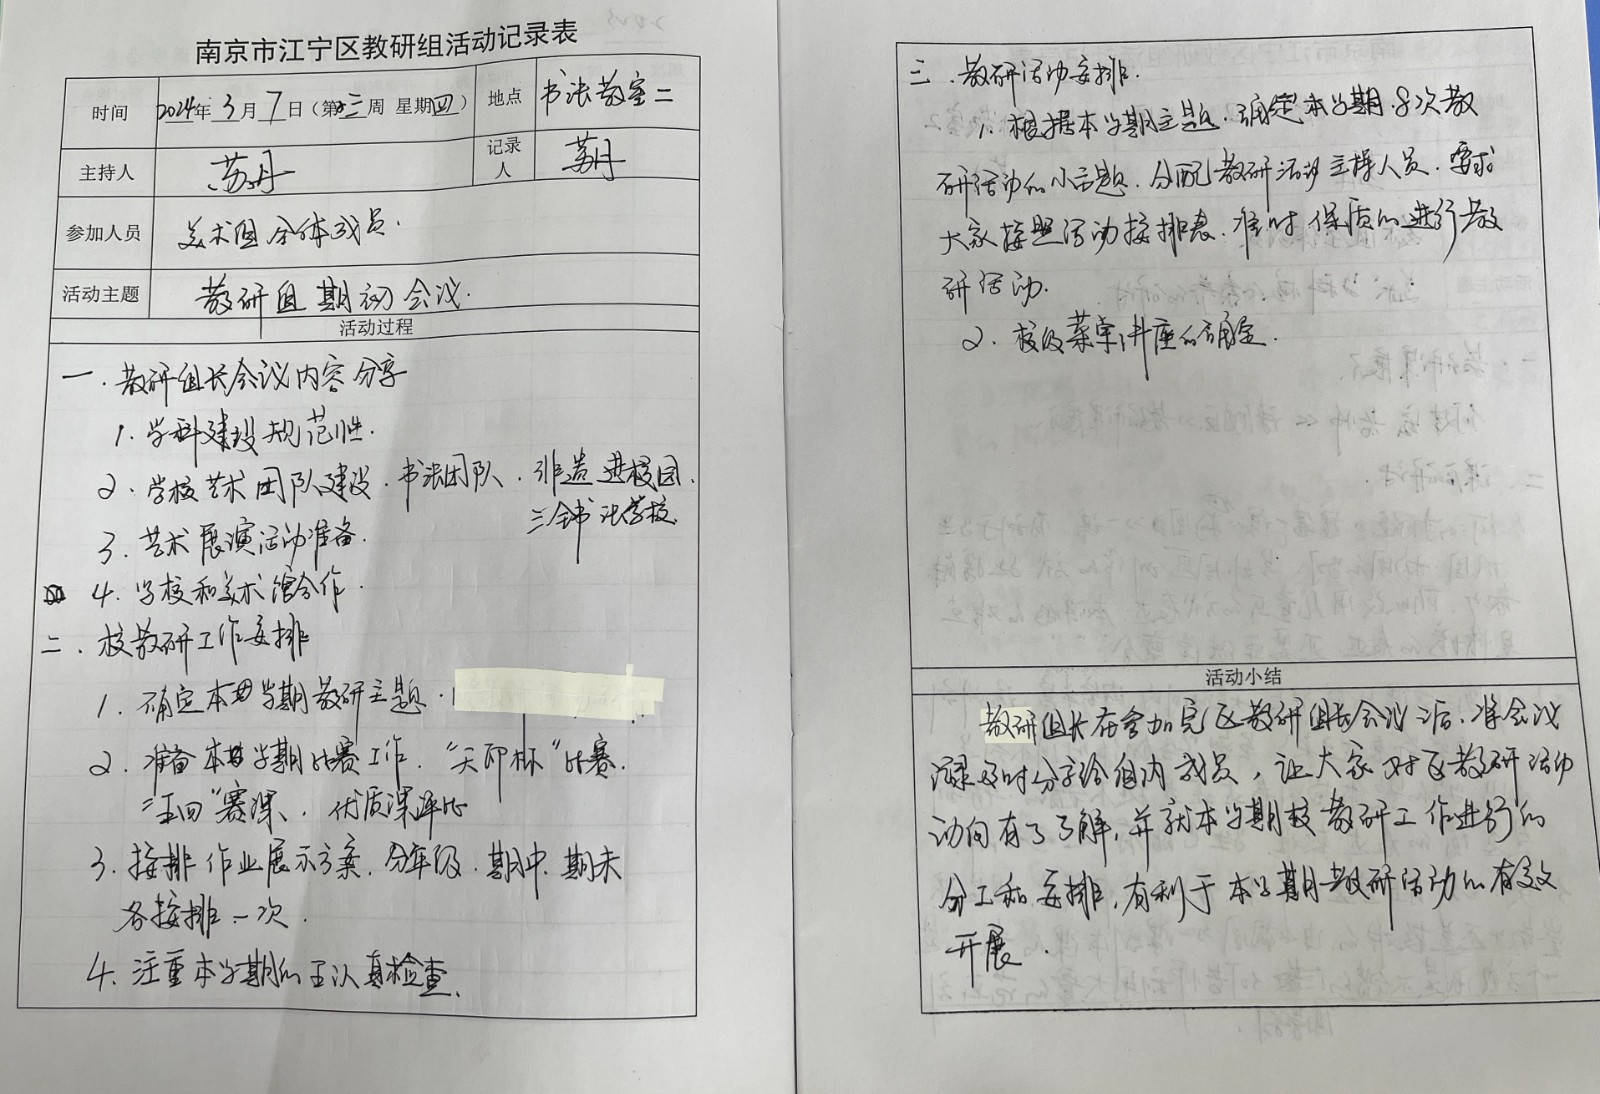 南京市江宁区教研组活动记录表
时间 2024年 3月 7日（第三周 星期四） 地点 书法教室二
主持人 苏丹 记录人 苏丹
参加人员 美术组全体成员.
活动主题 教研组期初会议.
活动过程
一.教研组长会议内容分享
1.学科建设规范性.
2.学校艺术团队建设.书法团队.非遗进校园.
书法学校
3.艺术展演活动准备.
4.学校和美术馆合作.
二.校教研工作安排
1.确定本学期教研主题.
2.准备本学期比赛工作."天印杯"比赛.
赛课、优质课评比
3.按排作业展示方案.分年级.期中.期末
各按排一次.
4.注重本学期的 认真检查.
三.教研活动安排.
1.根据本学期主题.确定本学期8次教
研活动的小主题.分配教研活动主持人员.要求
大家按照活动按排表.准时保质的进行教
研活动.
2.校级菜单讲座的确定.
活动小结
教研组长在参加完区教研组长会议之后.将会议
记录及时分享给组内成员，让大家对区教研活动
动向有了了解,并就本学期校教研工作进行的
分工和安排,有利于本学期教研活动的有效
开展.